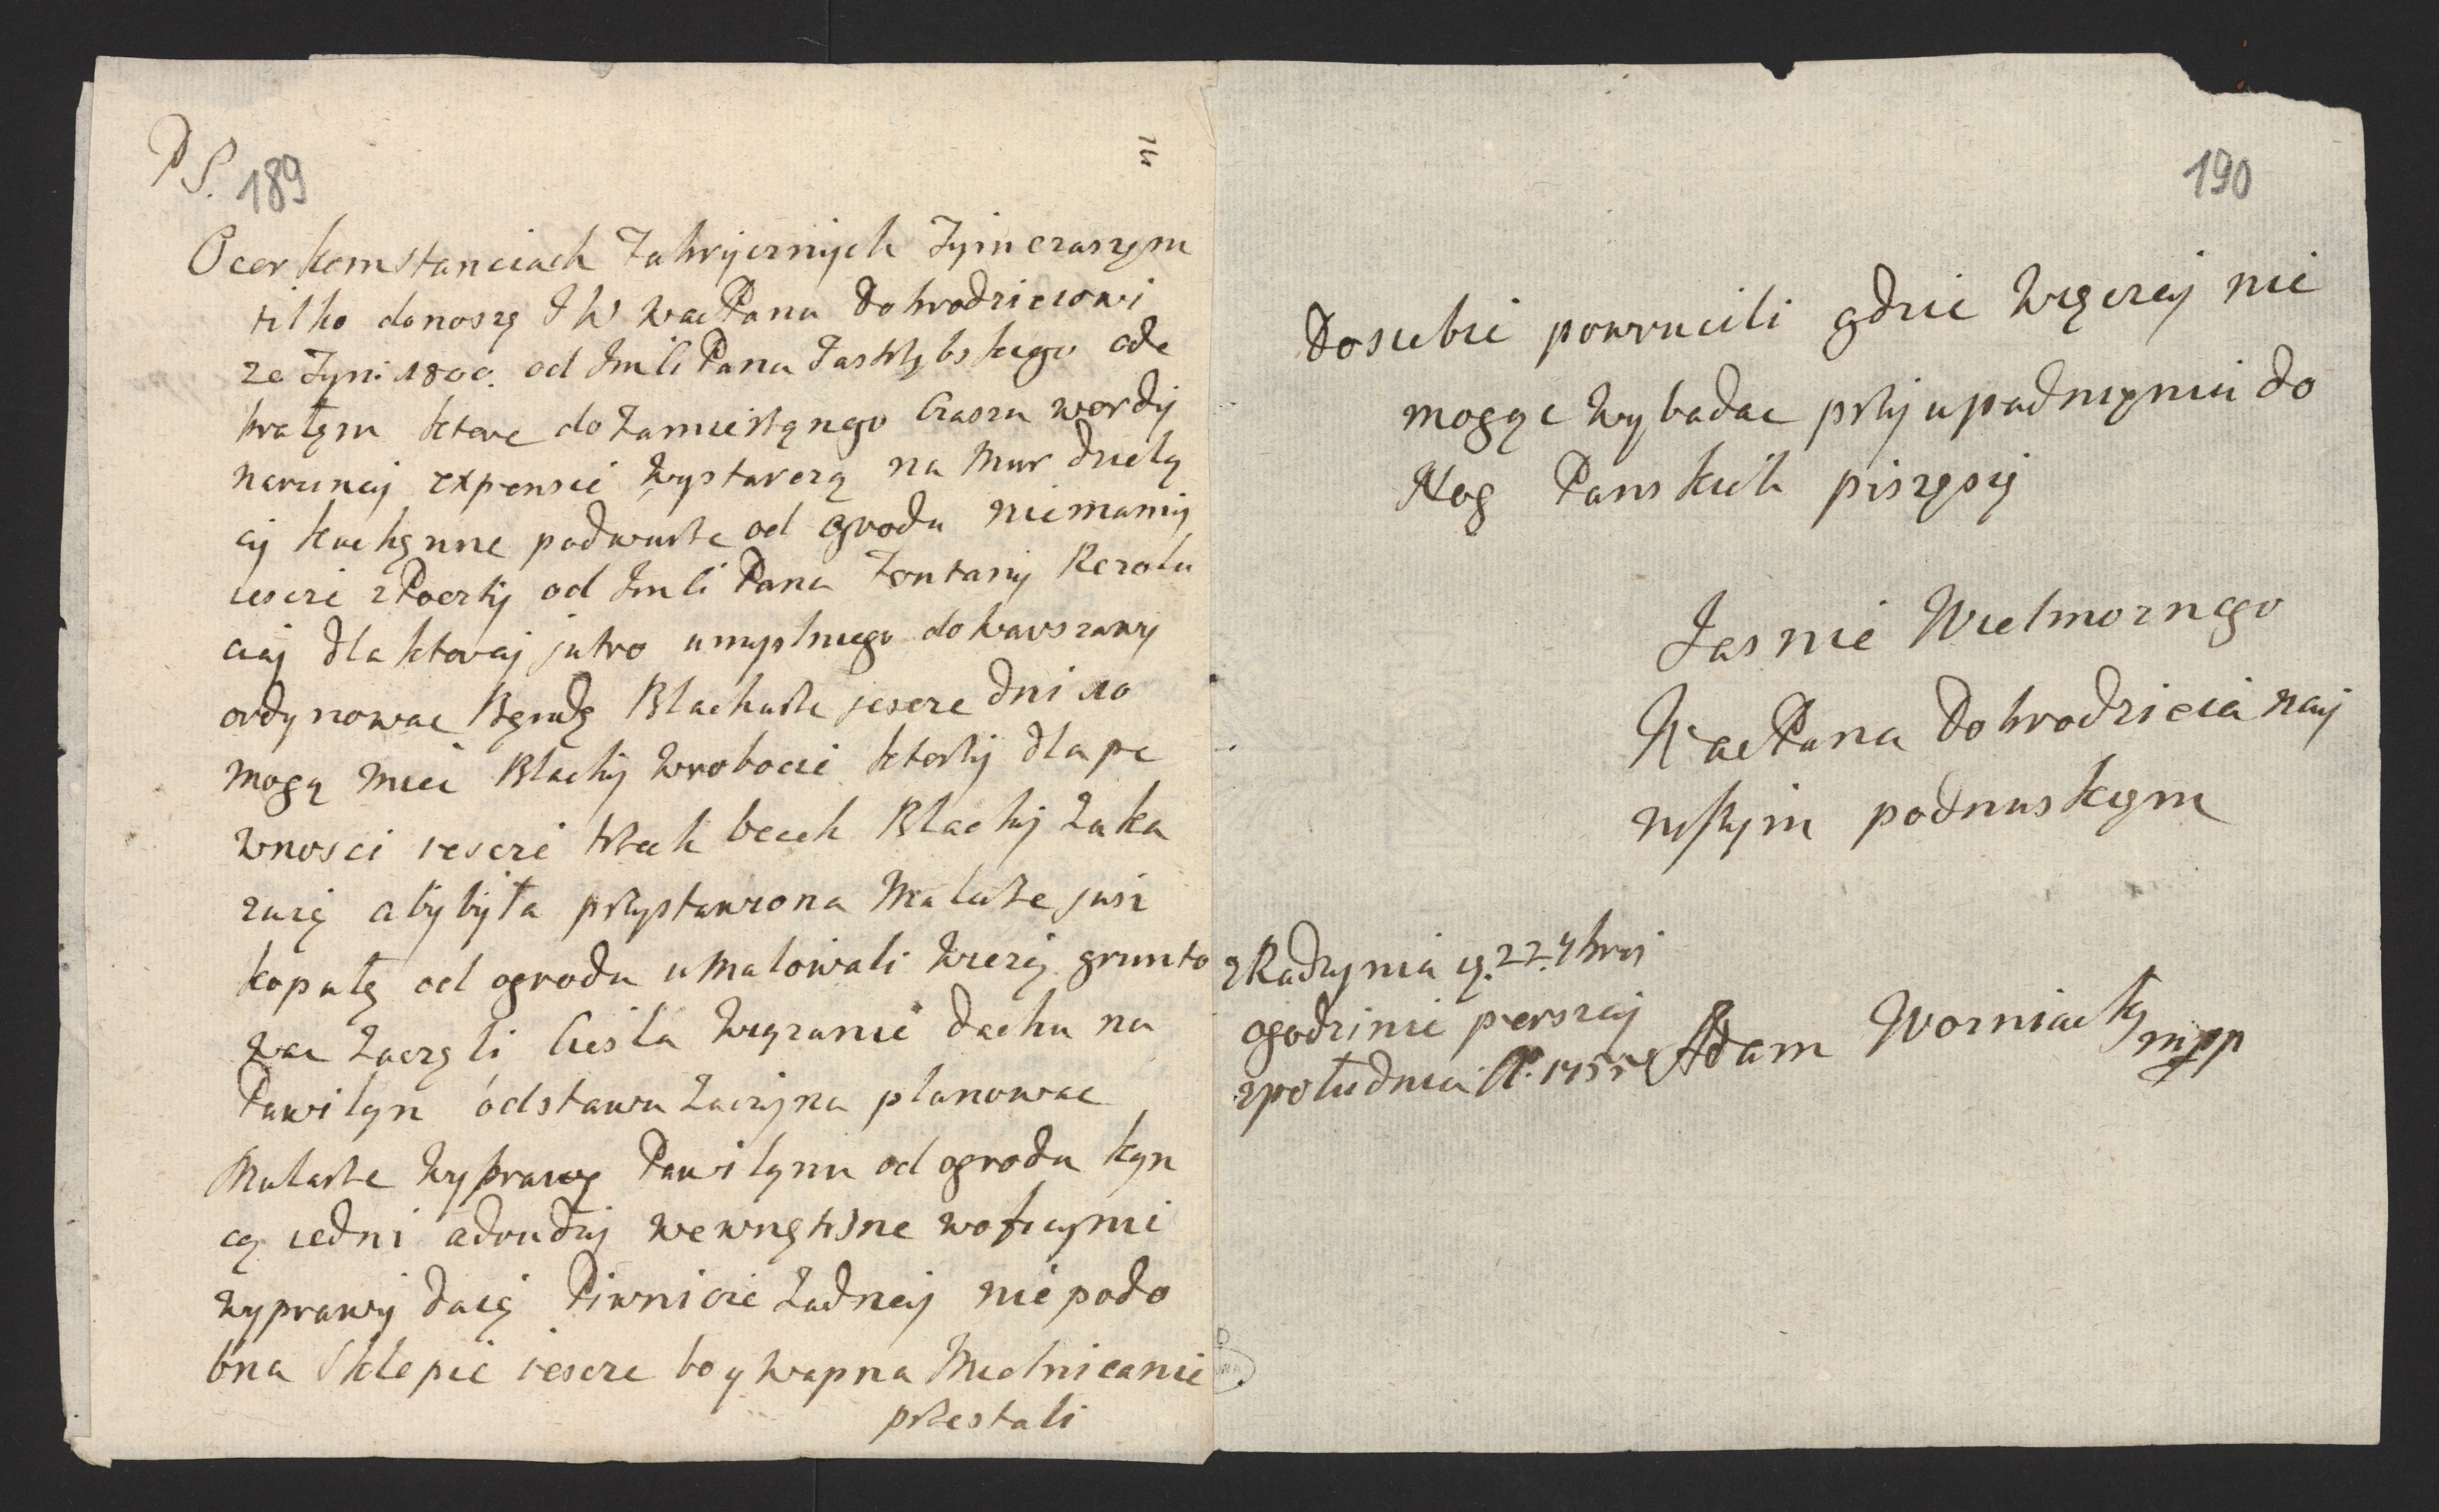 P S.
189
O cerkomstanciach Fabrycznych Tymczaszym
tilko donoszę J W WacPanu Dobrodzieiowi
ze Tyn: 1800. od Jmli Pana Jastrzębskiego ode
brałęm ktore do Zamierzęngo Czaszu wordy
naruncij expensie wystarczą na Mur dzielą
cy kuchęnne podworze od grodu niemamy
iescze zPoczty od Jmli Pana Fontany Rezolu
ciaj dla ktoraj jutro umyslnego do Warszawy
ordynowac Bęndę Blacharze jescze dni 10
mogą miec Blachy wrobocie ktorzy dla pe
wnosci iescze trzech becek Blachy Zaka
zuię aby była przystawiona Malarze jusz
kopułę od ogrodu umalowali Wiezę grunto
wac Zaczęli Ciesla Wiązanie dachu na
Pawilon odstawu Zaczyna planowac
Mularze Wyprawę Pawilonu od ogrodu kon
czą iedni a drudzy wewnętrzne woficynie
wyprawy daią Piwnicie Zadnej nie podo
bna Sklepic iescze bo y Wapna Mielniczanie
przestali
190
Do siebie powrucili gdzie Więczej nie
mogąc Wybadac przy upadnięniu do
Nog Panskich piszęsię
Jasnie Wielmoznego
WacPana Dobrodzieia naj
nyszym podnuskięm
zRadzynia d. 22. 7bris
ogodzinie pierszaj
zpołudnia A. 1755
Adam Wozniacky
mpp